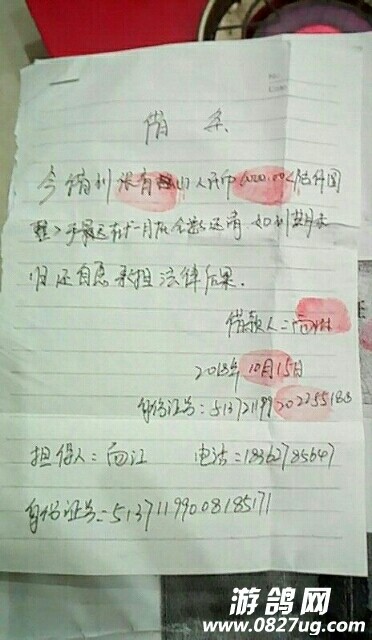 借条
今借到张有山人民币6000.00<陆仟圆
整>于最迟在十一月底全数还清 如到期未
归还自愿承担法律后果.
借款人:向
2018年10月15日
身份证号:513721199
担保人:向江 电话:18362785647
身份证号:51371199008185171
游鸽网
www.0827ug.com